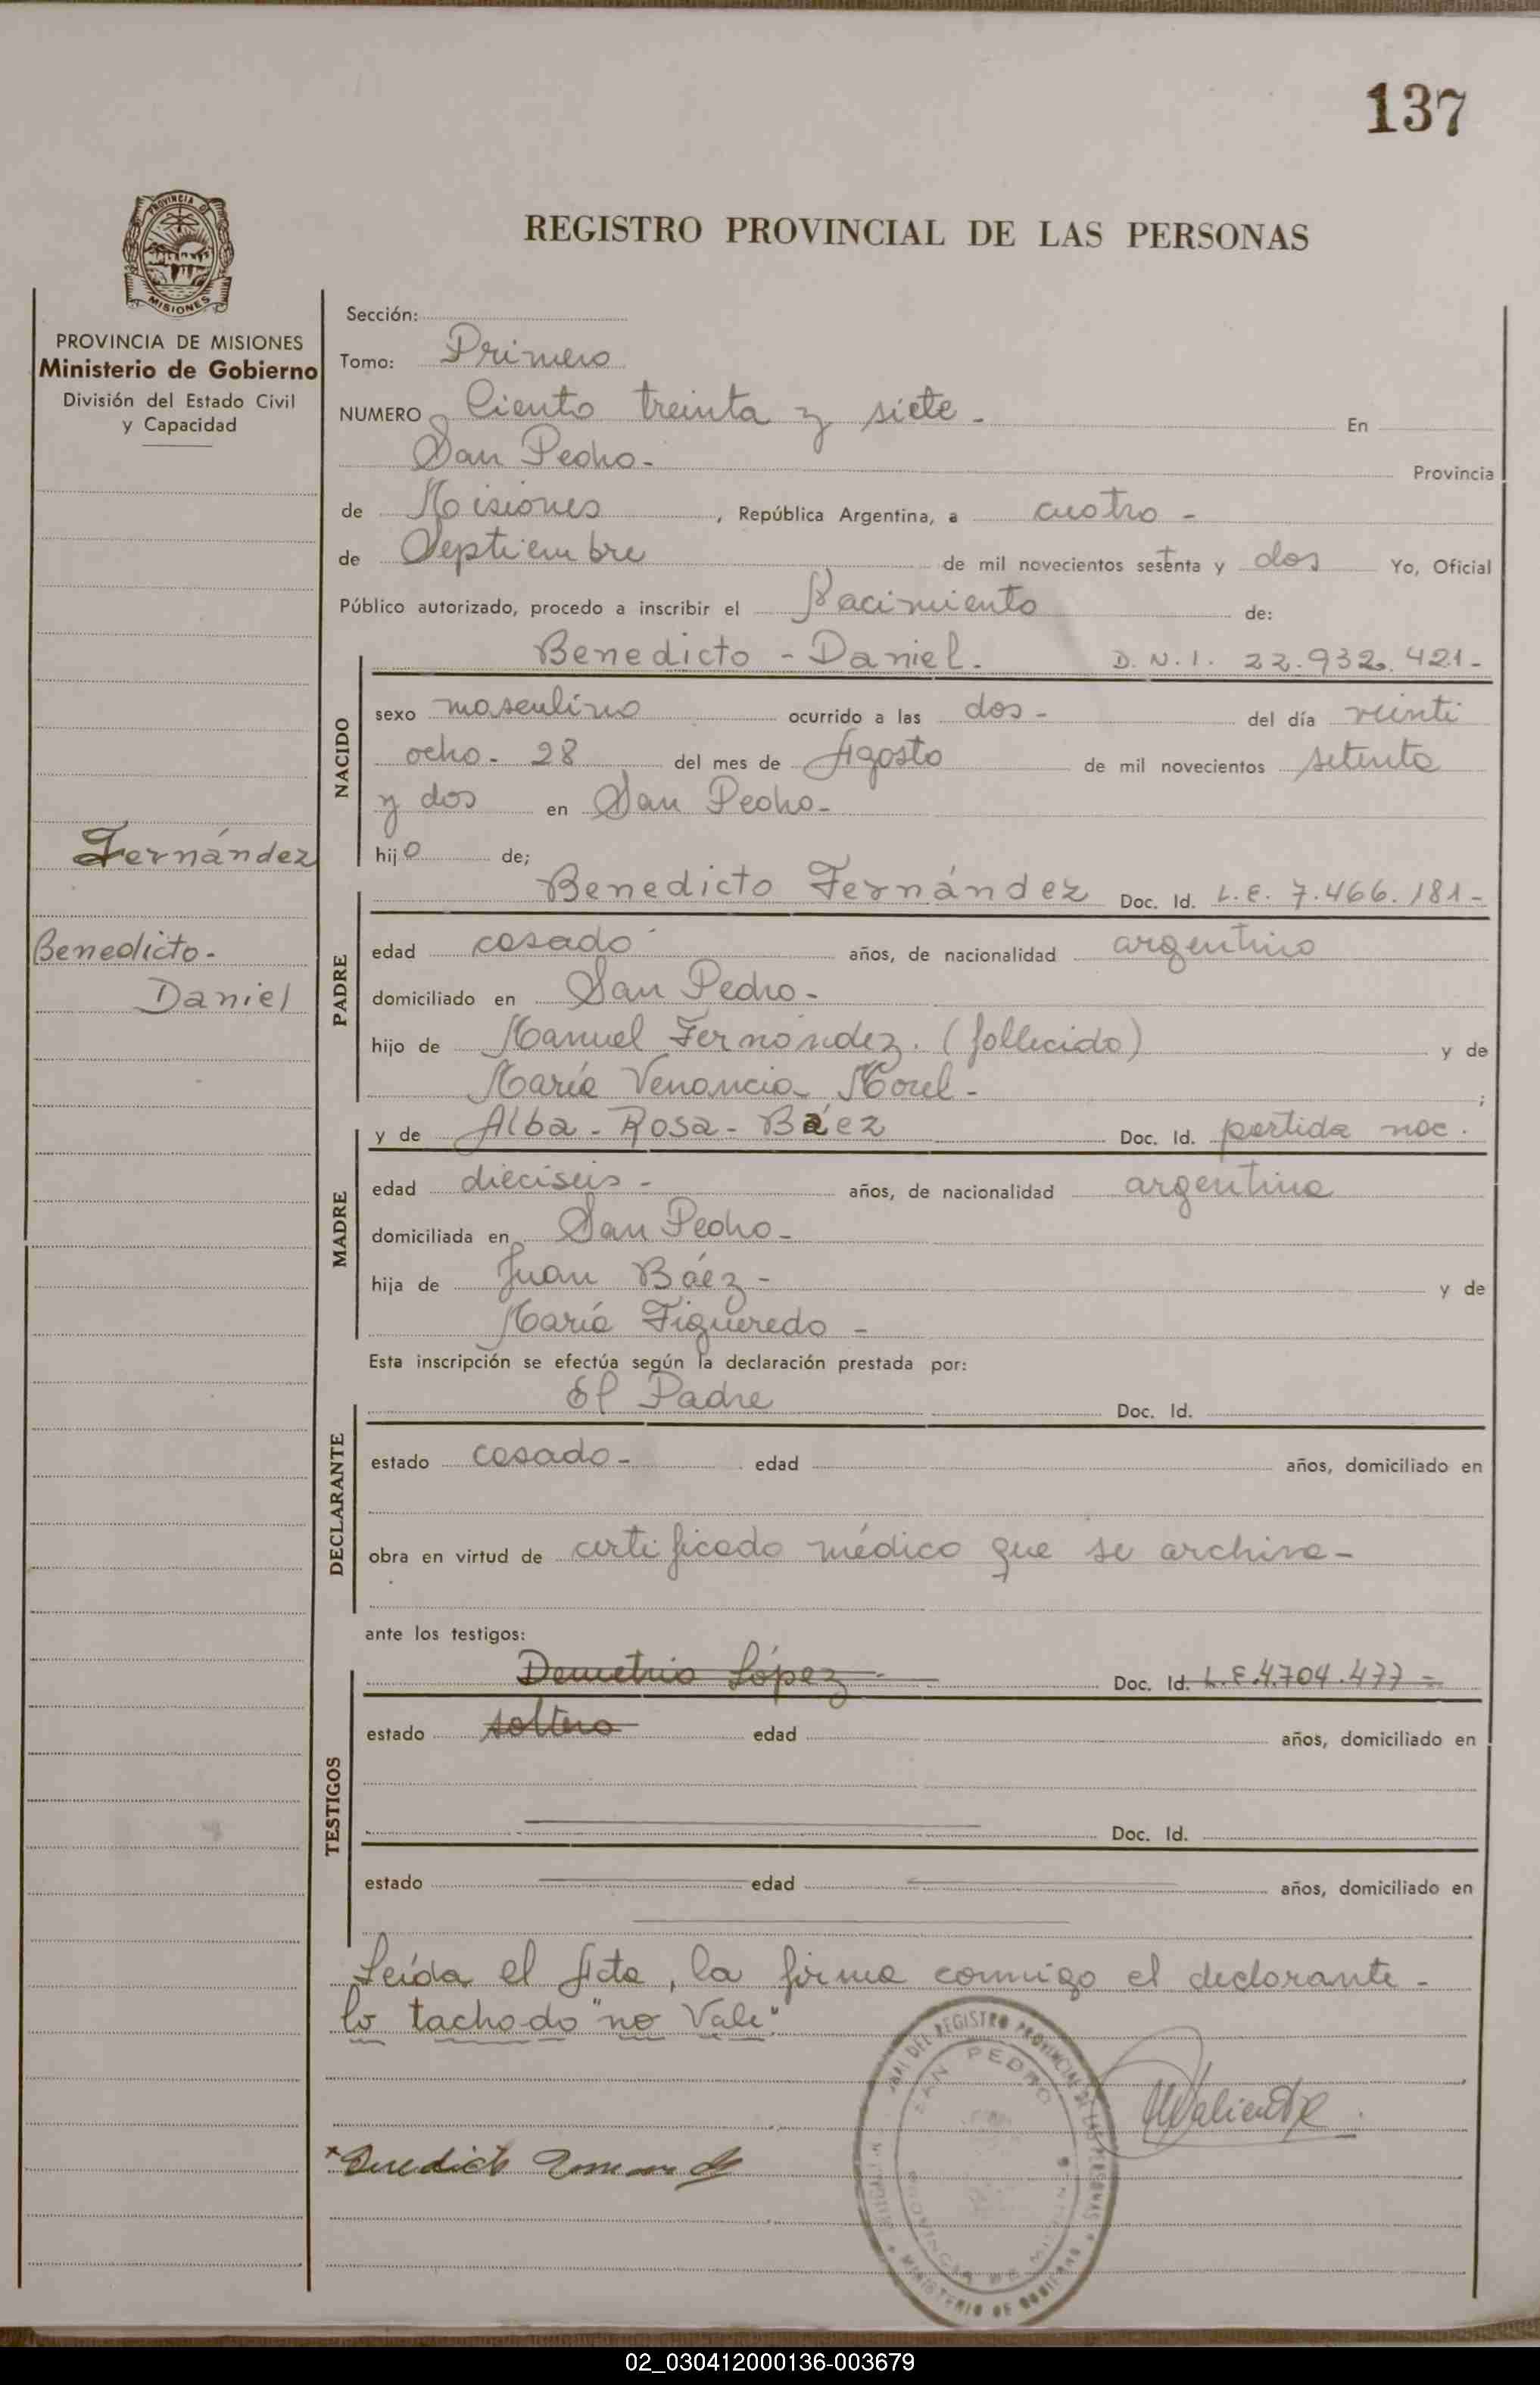 137
PROVINCIA DE
MISIONES
PROVINCIA DE MISIONES
Ministerio de Gobierno
División del Estado Civil
y Capacidad
Fernández
Benedicto-
Daniel
REGISTRO PROVINCIAL DE LAS PERSONAS
Sección:
Tomo: Primero
NUMERO Ciento treinta y siete - En
San Pedro- Provincia
de Misiones, República Argentina, a cuatro -
de Septiembre de mil novecientos setenta y dos Yo, Oficial
Público autorizado, procedo a inscribir el Nacimiento de:
Benedicto - Daniel. D.N.I. 22.932.421-
NACIDO
sexo masculino ocurrido a las dos - del día veinti
ocho - 28 del mes de Agosto de mil novecientos setenta
y dos en San Pedro-
hijo de;
Benedicto Fernández Doc. Id. L.E. 7.466.181-
PADRE
edad casado años, de nacionalidad argentino
domiciliado en San Pedro-
hijo de Manuel Fernández. (fallecido) y de
María Venancia Morel - ;
y de Alba - Rosa - Báez Doc. Id. partida nac.
MADRE
edad dieciseis - años, de nacionalidad argentina
domiciliada en San Pedro-
hija de Juan Báez - y de
María Figueredo -
Esta inscripción se efectúa según la declaración prestada por:
El Padre Doc. Id.
DECLARANTE
estado casado - edad años, domiciliado en
obra en virtud de certificado médico que se archiva -
ante los testigos:
Demetrio López - Doc. Id. L.E.4.704.477 -
TESTIGOS
estado soltero edad años, domiciliado en
Doc. Id.
estado edad años, domiciliado en
Leída el Acta, la firma conmigo el declarante -
lo tachado "no Vale"
DEL REGISTRO PROVINCIAL DE LAS PERSONAS
SAN PEDRO
PROVINCIA DE MISIONES
MINISTERIO DE GOBIERNO
Valiente
Benedicto
02_030412000136-003679